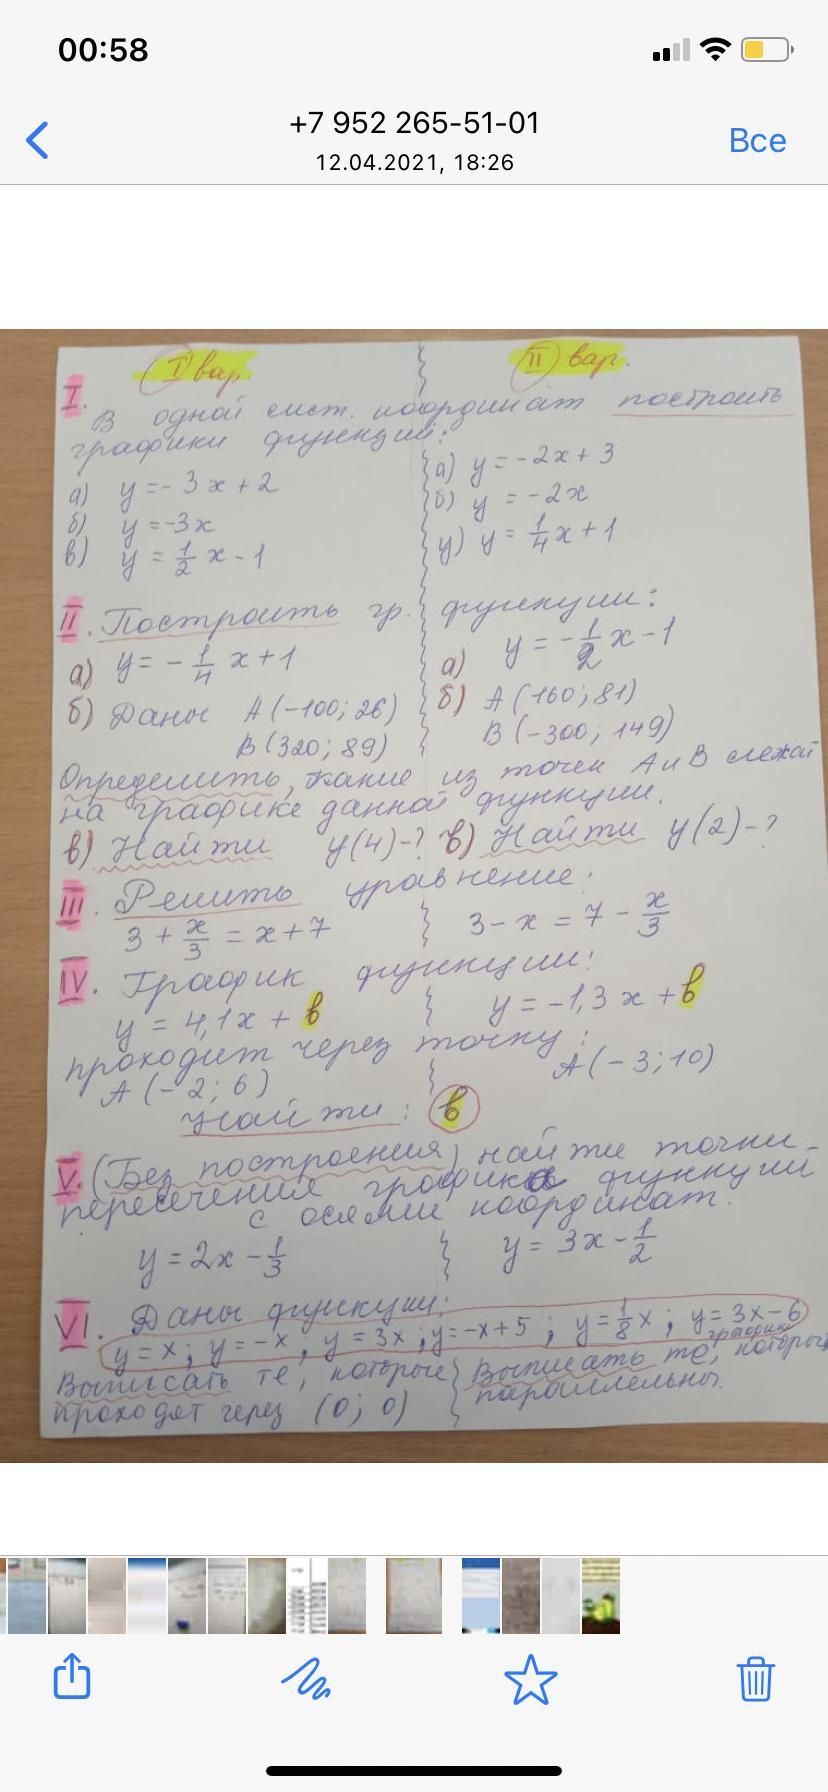 00:58
+7 952 265-51-01
12.04.2021, 18:26
Все
I вар. II вар.
I. В одной сист. координат построить
графики функций:
а) y = -3x + 2 а) y = -2x + 3
б) y = -3x б) y = -2x
в) y = 1/2 x - 1 у) y = 1/4 x + 1
II. Построить гр. функции:
а) y = - 1/4 x + 1 а) y = - 1/2 x - 1
б) Даны A(-100; 26) б) A(160; 81)
B(320; 89) B(-300; 149)
Определить, какие из точек A и B слежат
на графике данной функции.
в) Найти y(4) - ? в) Найти y(2) - ?
III. Решить уравнение:
3 + x/3 = x + 7 3 - x = 7 - x/3
IV. График функции:
y = 4,1x + в y = -1,3x + в
проходит через точку:
A(-2; 6) A(-3; 10)
Найти: в
V. (Без построения) найти точки
пересечения графика функции
с осями координат.
y = 2x - 1/3 y = 3x - 1/2
VI. Даны функции:
y = x; y = -x, y = 3x; y = -x + 5; y = 1/8 x; y = 3x - 6
Выписать те, которые Выписать те, графики которых
проходят через (0; 0) параллельны.